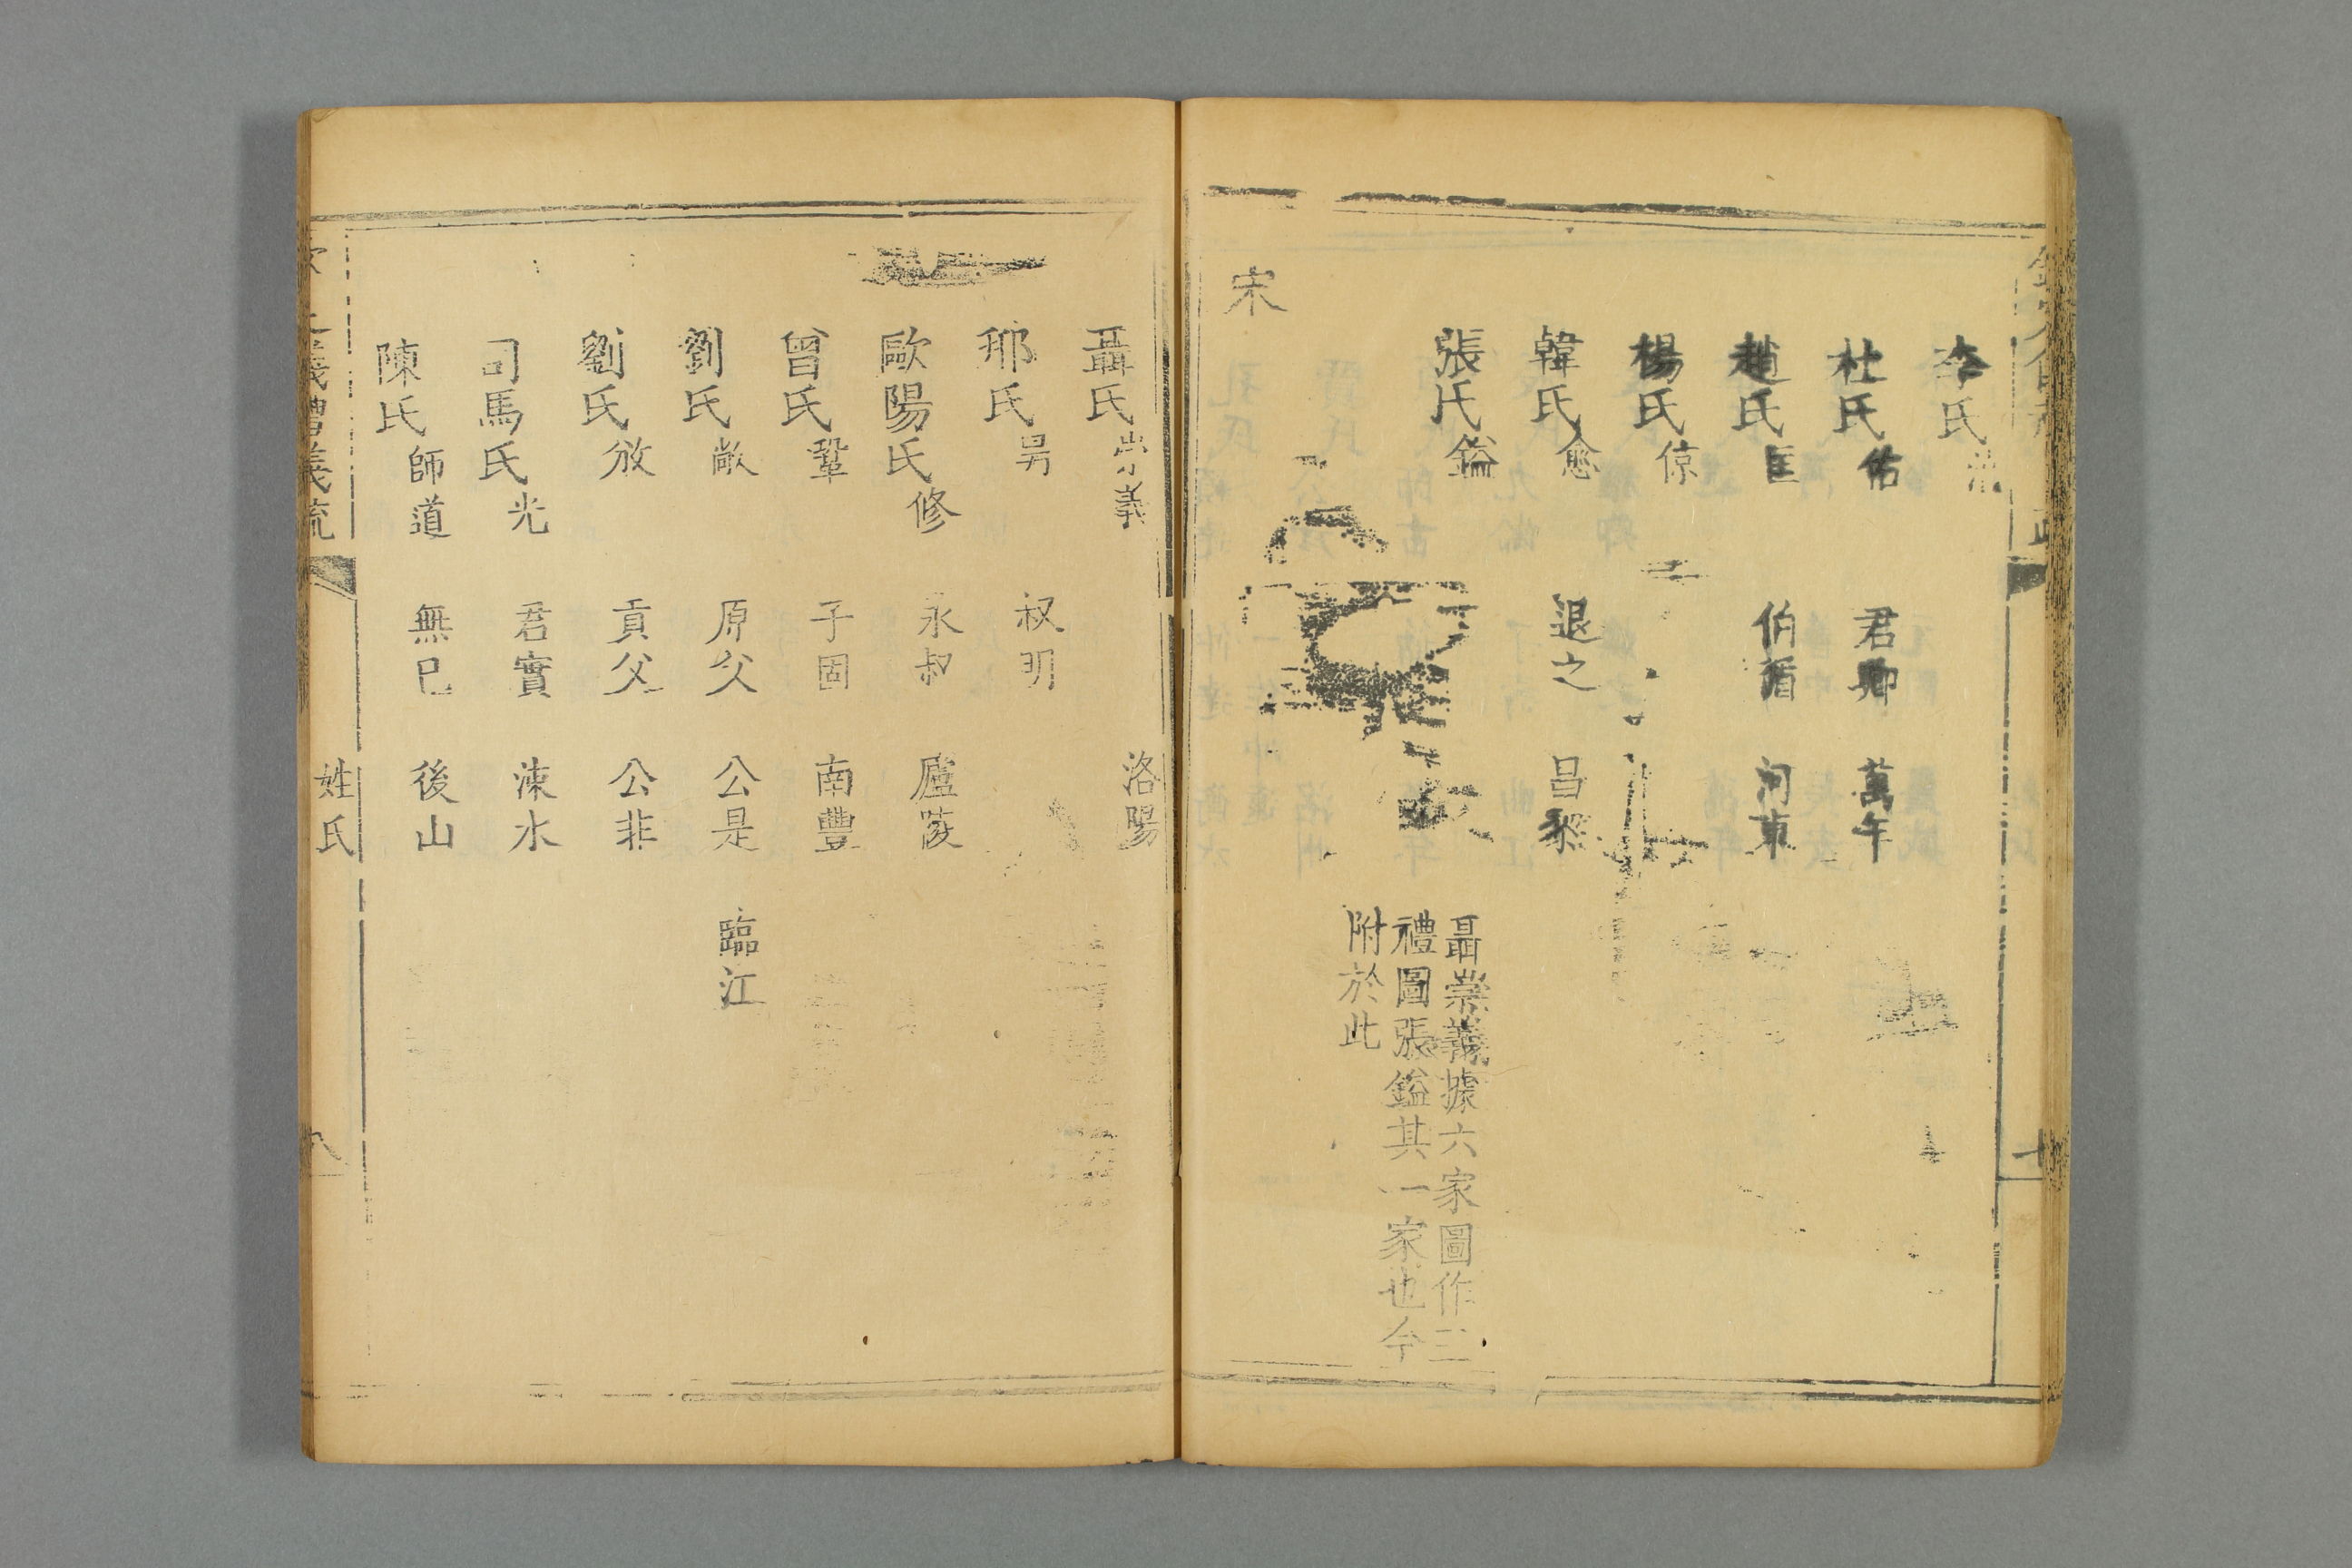 李氏
杜氏 佑 君卿 萬年
趙氏 匡 伯循 河東
楊氏 倞
韓氏 愈 退之 昌黎
張氏 鎰 聶崇義據六家圖作三
禮圖張鎰其一家也今
附於此
宋
聶氏 崇義 洛陽
邢氏 昺 叔明
歐陽氏 修 永叔 廬陵
曾氏 鞏 子固 南豐
劉氏 敞 原父 公是 臨江
劉氏 攽 貢父 公非
司馬氏 光 君實 涑水
陳氏 師道 無已 後山
義禮義疏 姓氏 八